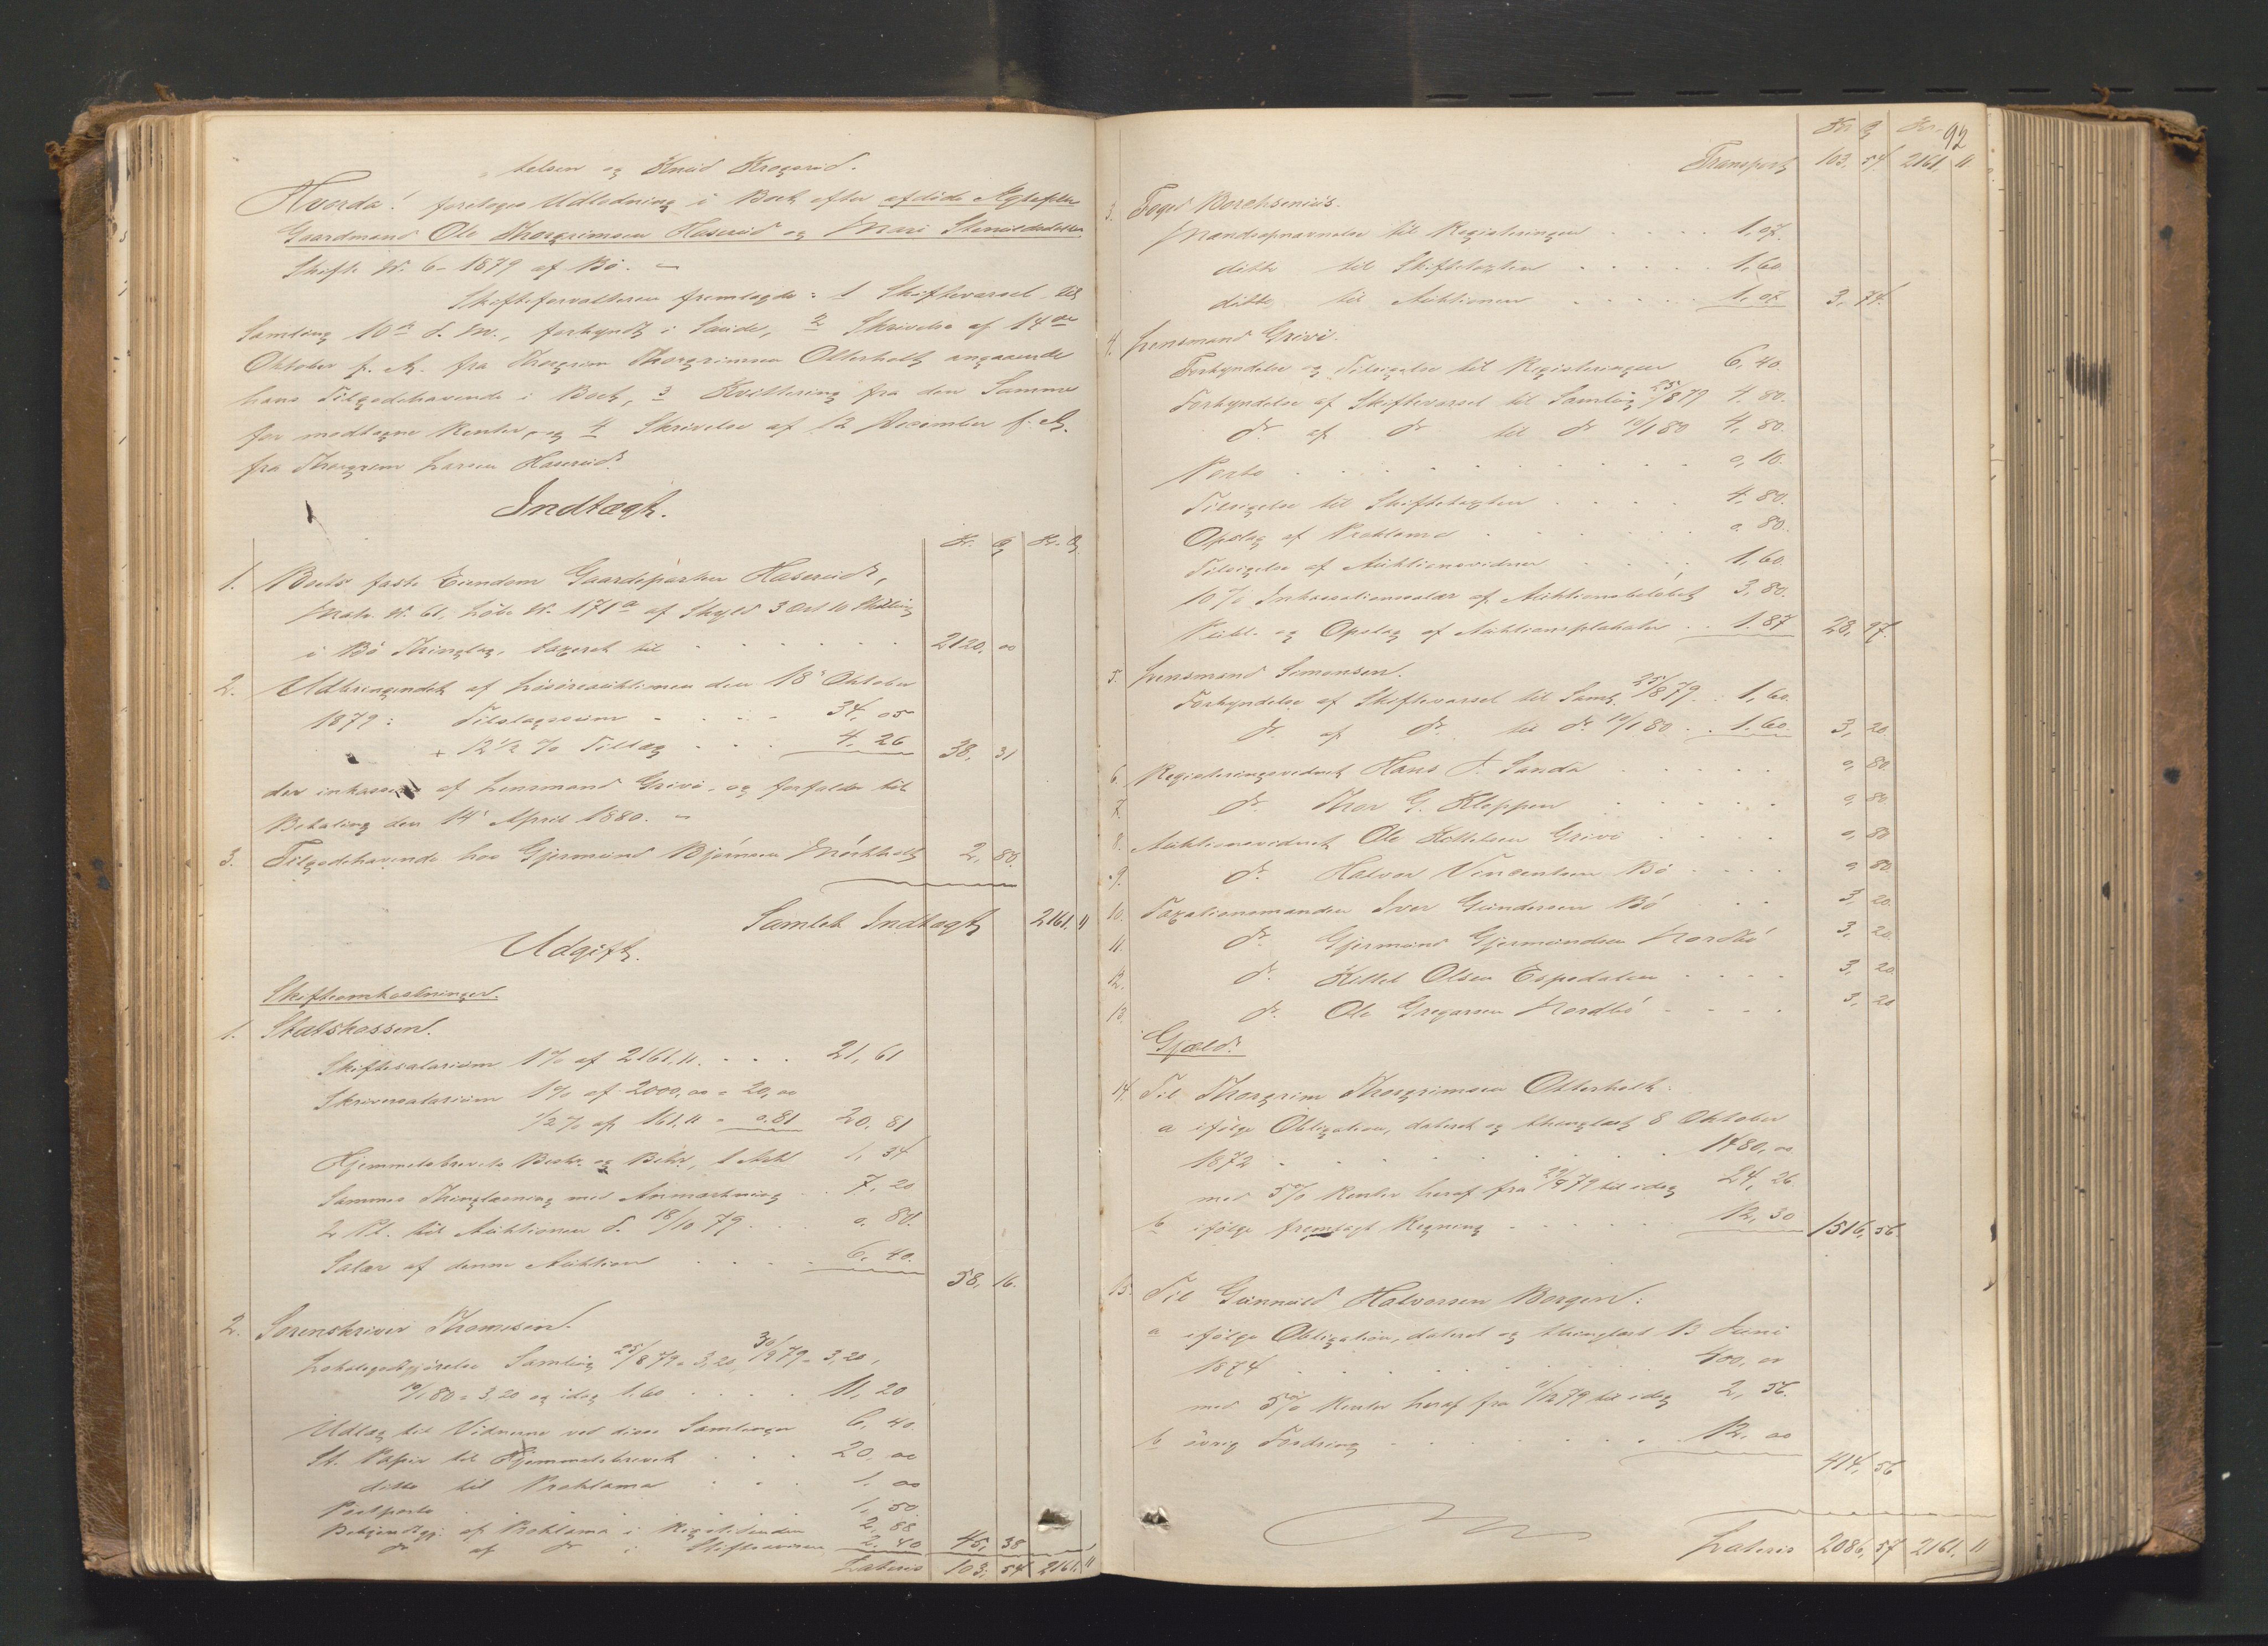 telsen og Knud Krogsrud.
Hvorda! foretoges Udlodning i Boet efter afdøde Ægtefolk
Gaardmand Ole Thorgrimsen Hasereid og Mari Steinulsdatter
Skifte No. 6 - 1879 af Bø. -
Skifteforvalteren fremlagde: 1 Skiftevarsel til
Samling 10de d. M., forkyndt i Saude, 2 Skrivelse af 14de
Oktober f. A. fra Thorgrim Thorgrimsen Otterholt angaaende
hans Tilgodehavende i Boet, 3 Kvittering fra den Samme
for modtagne Renter, og 4 Skrivelse af 12 December f. A.
fra Thorgrim Larsen Hasereid.
Indtægt.
Kr. Ø Kr. Ø.
1. Boets faste Eiendom Gaardeparten Hasereid,
Matr. No. 61, Løbe No. 171a af Skyld 3 Ort 10 Skilling
i Bø Thinglag, taxeret til . . . . . . . 2120, 00
2. Udbringendet af Løsøreauktionen den 18de Oktober
1879: Tilslagssum . . . . 34, 05
+ 12 1/2 % Tillæg . . . 4, 26 38, 31
der inkasseres af Lensmand Grivi, og forfalder til
Betaling den 14de April 1880. -
3. Tilgodehavende hos Gjermund Bjørnsen Mørkholt 2, 80.
Samlet Indtægt 2161. 11
Udgift.
Skifteomkostninger.
1. Statskassen.
Skiftesalarium 1% af 2161,11. . . . 21, 61
Skriversalarium 1% af 2000,00 = 20,00
1/2% af 161,11 = 0.81 20, 81
Hjemmelsbrevets Beskr. og Bekr., 1 Ark 1, 34
Sammes Thinglæsning med Anmærkning . . 7, 20
2 Pl. til Auktionen d. 18/10 79. . . . 0, 80.
Salær af denne Auktion . . . . 6, 40. 58, 16.
2. Sorenskriver Thomesen.
Lokalegodtgjørelse Samling 25/8 79 = 3,20, 30/9 79 = 3,20,
10/1 80 = 3,20 og idag 1,60 . . . . 11, 20
Udlæg til Vidnerne ved disse Samlinger 6, 40.
St. Papir til Hjemmelsbrevet . . . 20, 00
ditto til Proklama . . . 1, 00
Postporto . . . . . . . 1, 50.
Bekjendtgj: af Proklama i Rigstidenden 2, 88
do af do i Stiftsavisen 2, 40 45, 38
Lateris 103, 54 2161, 11
92
Kr Ø Kr.
Transport 103. 54. 2161, 11
3. Foged Borchsenius.
Mandsopnævnelse til Registeringen . . . . 1, 07.
ditto til Skiftetaxten . . . . . 1, 60
ditto til Auktionen . . . . . 1, 07 3, 74.
4. Lensmand Grivi.
Forkyndelse og Tilsigelse til Registeringen 6, 40.
Forkyndelse af Skiftevarsel til Samling 25/8 79 4, 80.
do af do til do 10/1 80 4, 80
Porto . . . . . . . . . . 0, 10.
Tilsigelse til Skiftetaxten . . . . 4, 80.
Opslag af Proklama . . . . . . 0. 80.
Tilsigelse af Auktionsvidner . . . . 1, 60.
10% Inkassationssalær af Auktionsbeløbet 3, 80.
Publ. og Opslag af Auktionsplakater . . 1. 87 28, 97.
5. Lensmand Simonsen.
Forkyndelse af Skiftevarsel til Saml. 25/8 79 . . 1, 60.
do af do til do 10/1 80 . . 1. 60. 3, 20.
6. Registeringsvidnet Hans J. Sanda . . . . . 0, 80.
7. do Thor G. Kleppen . . . . . 0, 80
8. Auktionsvidnet Ole Kittelsen Grivi . . . . 0, 80
9. do Halvor Vincentsen Bø . . . . 0, 80
10. Taxationsmanden Iver Gundersen Bø . . . 3, 20.
11. do Gjermund Gjermundsen Nordbø 3, 20.
12. do Kittel Olsen Espedalen . . . . 3, 20
13. do Ole Gregarsen Nordbø . . . . 3, 20
Gjæld.
14. Til Thorgrim Thorgrimsen Otterholt:
a ifølge Obligation, dateret og thinglæst 8 Oktober
1872 . . . . . . . . . 1480, 00
med 5% Renter heraf fra 29/9 79 til idag 24, 26.
b ifølge fremlagt Regning . . . . . . 12, 30 1516, 56.
15. Til Gunnuld Halvorsen Borgen:
a ifølge Obligation, dateret og thinglæst 13 Juni
1874 . . . . . . . . . 400, 00
med 5% Renter heraf fra 11/12 79 til idag 2, 56.
b øvrig Fordring . . . . . . . 12, 00
414, 56
Lateris 2086, 57 2161, 11